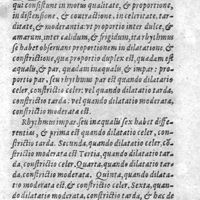 qui consistunt in motus qualitate, & proportione,
in distensione, & contractione, in celeritate, tar-
ditate, & moderantia: vt proportio inter dulce, &
amarum, inter calidum, & frigidum, ita rhythmus
se habet obseruans proportionem in dilatatione, &
constrictione, quæ proportio duplex est, quædam est
æqualis, & par, quædam inæqualis, & impar: pro-
portio par, seu rhythmus par est quando dilatatio
celer, constrictio celer: vel quando dilatatio tarda,
constrictio tarda: vel quando dilatatio moderata,
constrictio moderata est.
Rhythmus impar seu inæqualis sex habet diffe-
rentias, & prima est quando dilatatio celer, con-
strictio tarda. Secunda, quando dilatatio celer, con-
strictio moderata est Tertia, quando dilatatio tar-
da, constrictio celer. Quarta, quando dilatatio tar-
da, constrictio moderata. Quinta, quando dilata-
tio moderata est, & constrictio celer. Sexta, quan-
do dilatatio moderata, constrictio tarda, & hæc de